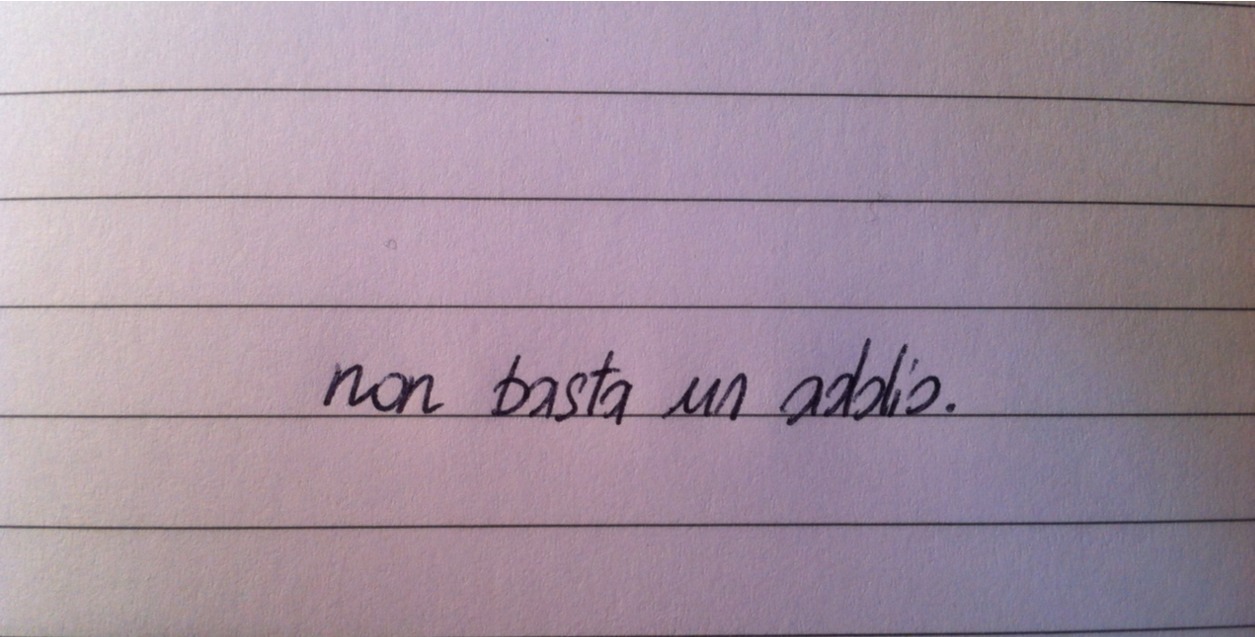 non basta un addio.